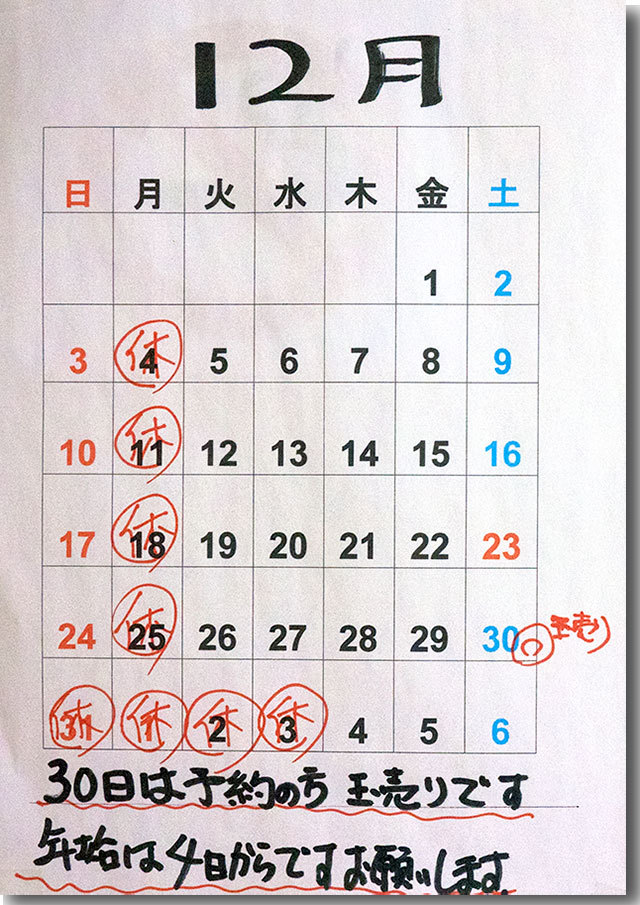 12月
日 月 火 水 木 金 土
1 2
3 休 4 5 6 7 8 9
10 休 11 12 13 14 15 16
17 休 18 19 20 21 22 23
24 休 25 26 27 28 29 30 玉売り
休 31 休 1 休 2 休 3 4 5 6
30日は予約の方 玉売りです
年始は4日からですお願いします